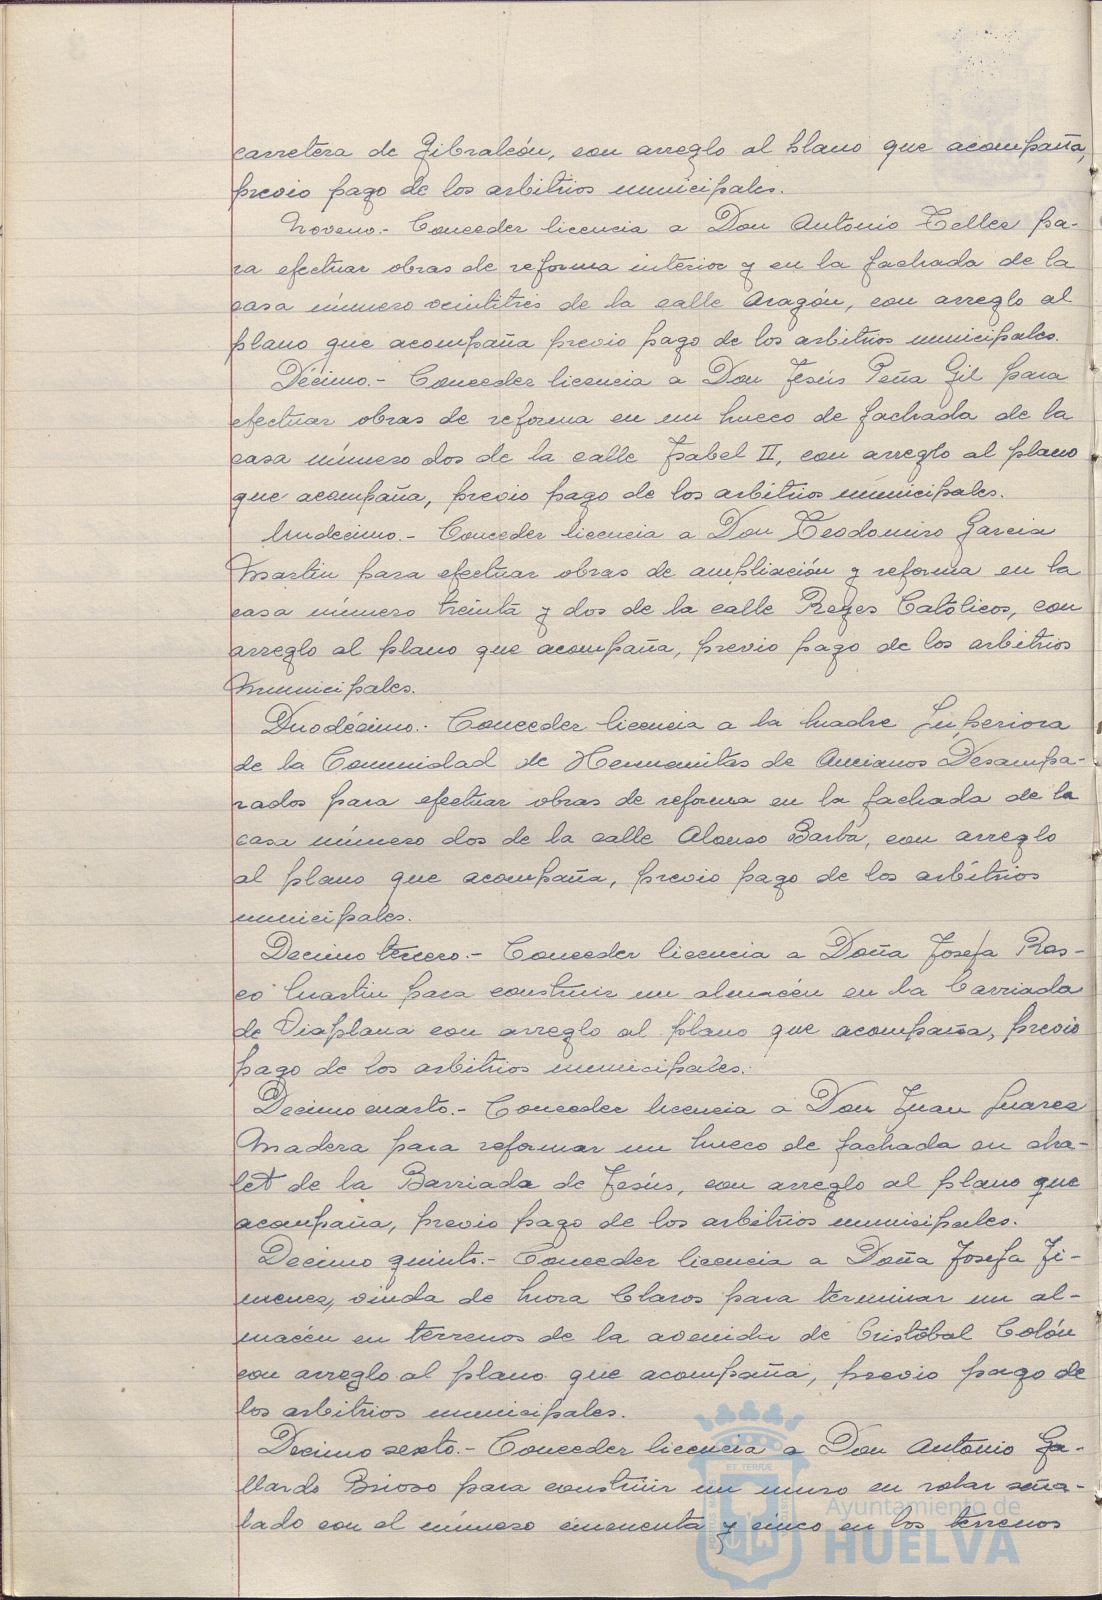 carretera de Gibraleón, con arreglo al plano que acompaña,
previo pago de los arbitrios municipales.
Noveno.- Conceder licencia a Don Antonio Teller pa-
ra efectuar obras de reforma interior y en la fachada de la
casa número veintitrés de la calle Aragón, con arreglo al
plano que acompaña previo pago de los arbitrios municipales.
Décimo.- Conceder licencia a Don Jesús Peña Gil para
efectuar obras de reforma en un hueco de fachada de la
casa número dos de la calle Isabel II, con arreglo al plano
que acompaña, previo pago de los arbitrios municipales.
Undecimo.- Conceder licencia a Don Teodomiro Garcia
Martin para efectuar obras de ampliación y reforma en la
casa número treinta y dos de la calle Reyes Católicos, con
arreglo al plano que acompaña, previo pago de los arbitrios
municipales.
Duodécimo.- Conceder licencia a la Madre Superiora
de la Comunidad de Hermanitas de Ancianos Desampa-
rados para efectuar obras de reforma en la fachada de la
casa número dos de la calle Alonso Barba, con arreglo
al plano que acompaña, previo pago de los arbitrios
municipales.
Decimo tercero.- Conceder licencia a Doña Josefa Ras-
co Martin para construir un almacén en la barriada
de Viaplana con arreglo al plano que acompaña, previo
pago de los arbitrios municipales.
Decimo cuarto.- Conceder licencia a Don Juan Suarez
Madera para reformar un hueco de fachada en cha-
let de la Barriada de Jesús, con arreglo al plano que
acompaña, previo pago de los arbitrios municipales.
Decimo quinto.- Conceder licencia a Doña Josefa Ji-
menez, viuda de Mora Claros para terminar un al-
macén en terrenos de la avenida de Cristóbal Colón
con arreglo al plano que acompaña, previo pago de
los arbitrios municipales.
Decimo sexto.- Conceder licencia a Don Antonio Ga-
llardo Brioso para construir un muro en solar seña-
lado con el número cincuenta y cinco en los terrenos
Ayuntamiento de
HUELVA